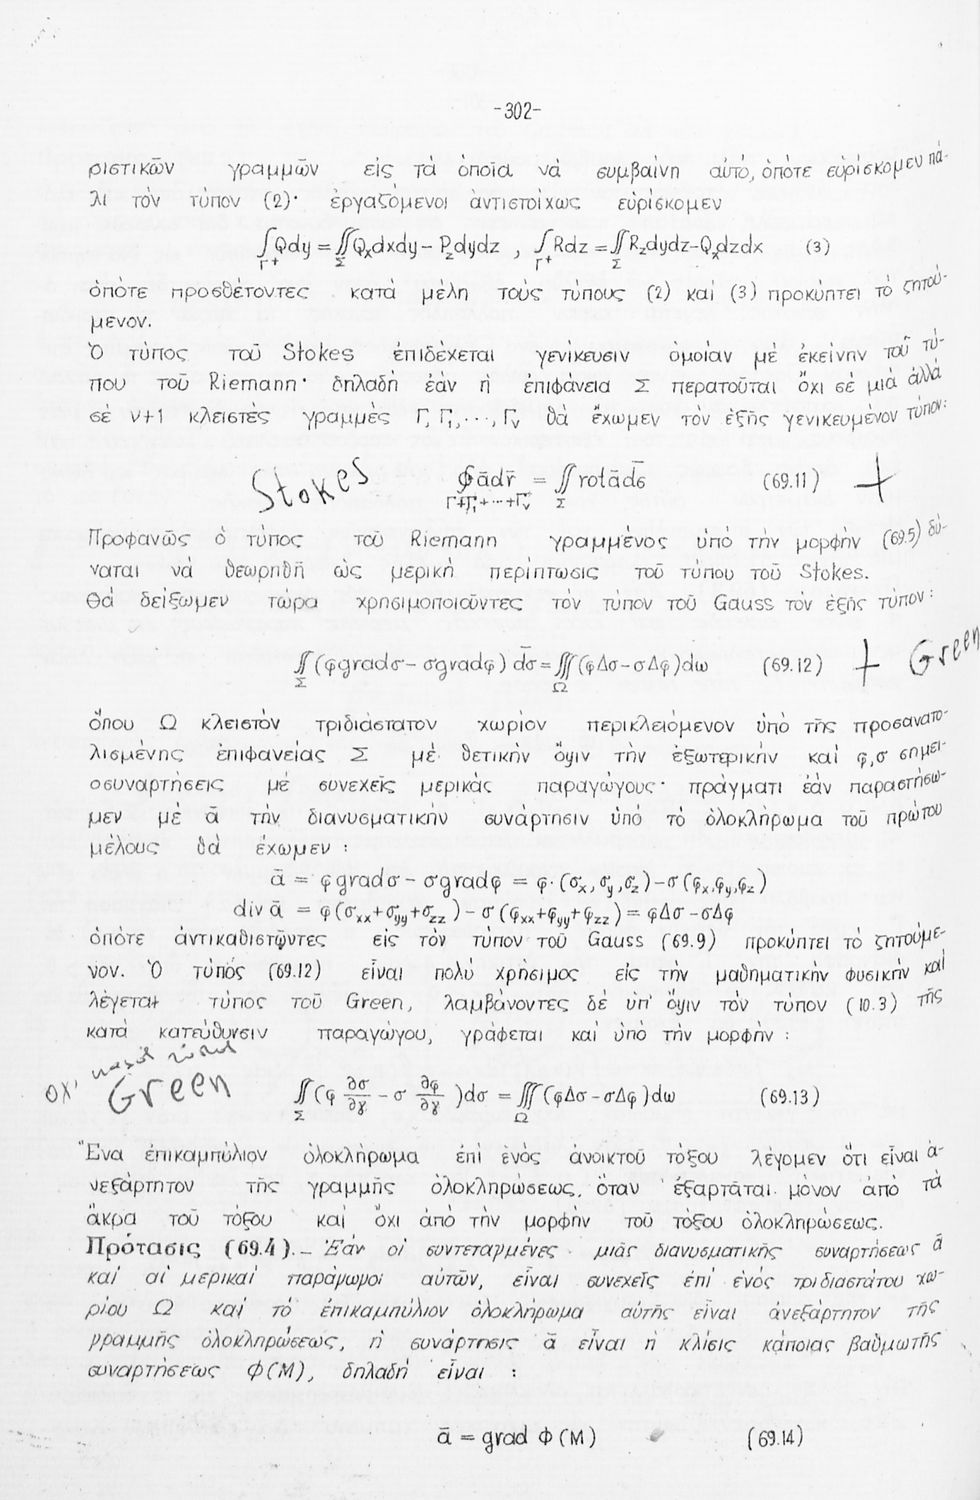 -302-
ριστικῶν γραμμῶν εἰς τὰ ὁποῖα νὰ συμβαίνη αὐτό, ὁπότε εὑρίσκομεν πά-
λι τὸν τύπον (2)· ἐργαζόμενοι ἀντιστοίχως εὑρίσκομεν
∫Qdy = ∬Qₓdxdy - P_zdydz , ∫Rdz = ∬R_zdydz - Qₓdzdx (3)
Γ⁺ Σ Γ⁺ Σ
ὁπότε προσθέτοντες κατὰ μέλη τοὺς τύπους (2) καὶ (3) προκύπτει τὸ ζητού-
μενον.
Ὁ τύπος τοῦ Stokes ἐπιδέχεται γενίκευσιν ὁμοίαν μὲ ἐκείνην τοῦ τύ-
που τοῦ Riemann· δηλαδὴ ἐὰν ἡ ἐπιφάνεια Σ περατοῦται ὄχι σὲ μιὰ ἀλλὰ
σὲ ν+1 κλειστὲς γραμμὲς Γ, Γ₁, ···, Γᵥ θὰ ἔχωμεν τὸν ἑξῆς γενικευμένον τύπον:
Stokes ∮ādr̄ = ∬rotādσ̄ (69.11) +
Γ+Γ₁+···+Γᵥ Σ
Προφανῶς ὁ τύπος τοῦ Riemann γραμμένος ὑπὸ τὴν μορφὴν (69.5) δύ-
ναται νὰ θεωρηθῆ ὡς μερικὴ περίπτωσις τοῦ τύπου τοῦ Stokes.
Θὰ δείξωμεν τώρα χρησιμοποιοῦντες τὸν τύπον τοῦ Gauss τὸν ἑξῆς τύπον:
∬(φgradσ - σgradφ) dσ̄ = ∭(φΔσ-σΔφ)dω (69.12) + Green
Σ Ω
ὅπου Ω κλειστὸν τριδιάστατον χωρίον περικλειόμενον ὑπὸ τῆς προσανατο-
λισμένης ἐπιφανείας Σ μὲ θετικὴν ὄψιν τὴν ἐξωτερικὴν καὶ φ,σ σημει-
οσυναρτήσεις μὲ συνεχεῖς μερικὰς παραγώγους· πράγματι ἐὰν παραστήσω-
μεν μὲ ā τὴν διανυσματικὴν συνάρτησιν ὑπὸ τὸ ὁλοκλήρωμα τοῦ πρώτου
μέλους θὰ ἔχωμεν :
ā = φgradσ - σgradφ = φ·(σₓ, σ_y, σ_z) - σ(φₓ, φ_y, φ_z)
div ā = φ(σₓₓ+σ_yy+σ_zz) - σ(φₓₓ+φ_yy+φ_zz) = φΔσ - σΔφ
ὁπότε ἀντικαθιστῶντες εἰς τὸν τύπον τοῦ Gauss (69.9) προκύπτει τὸ ζητούμε-
νον. Ὁ τύπος (69.12) εἶναι πολὺ χρήσιμος εἰς τὴν μαθηματικὴν φυσικὴν καὶ
λέγεται τύπος τοῦ Green, λαμβάνοντες δὲ ὑπ' ὄψιν τὸν τύπον (10.3) τῆς
κατὰ κατεύθυνσιν παραγώγου, γράφεται καὶ ὑπὸ τὴν μορφὴν :
Green ∬(φ ∂σ/∂γ - σ ∂φ/∂γ )dσ = ∭(φΔσ-σΔφ)dω (69.13)
Σ Ω
Ἕνα ἐπικαμπύλιον ὁλοκλήρωμα ἐπὶ ἑνὸς ἀνοικτοῦ τόξου λέγομεν ὅτι εἶναι ἀ-
νεξάρτητον τῆς γραμμῆς ὁλοκληρώσεως, ὅταν ἐξαρτᾶται μόνον ἀπὸ τὰ
ἄκρα τοῦ τόξου καὶ ὄχι ἀπὸ τὴν μορφὴν τοῦ τόξου ὁλοκληρώσεως.
Πρότασις (69.4).- Ἐὰν οἱ συντεταγμένες μιᾶς διανυσματικῆς συναρτήσεως ā
καὶ αἱ μερικαὶ παράγωγοι αὐτῶν, εἶναι συνεχεῖς ἐπὶ ἑνὸς τριδιαστάτου χω-
ρίου Ω καὶ τὸ ἐπικαμπύλιον ὁλοκλήρωμα αὐτῆς εἶναι ἀνεξάρτητον τῆς
γραμμῆς ὁλοκληρώσεως, ἡ συνάρτησις ā εἶναι ἡ κλίσις κάποιας βαθμωτῆς
συναρτήσεως Φ(Μ), δηλαδὴ εἶναι :
ā = grad Φ(Μ) (69.14)